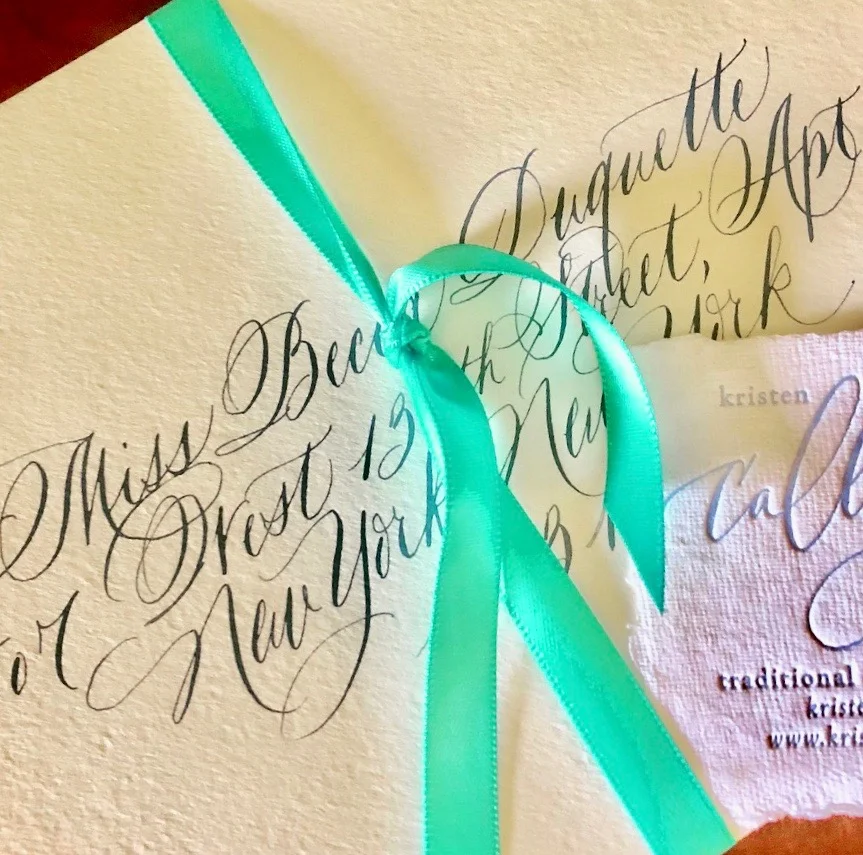 Miss Becca Duquette
West 13th Street, Apt
New York, New York
kristen
calli
traditional
kriste
www.kris